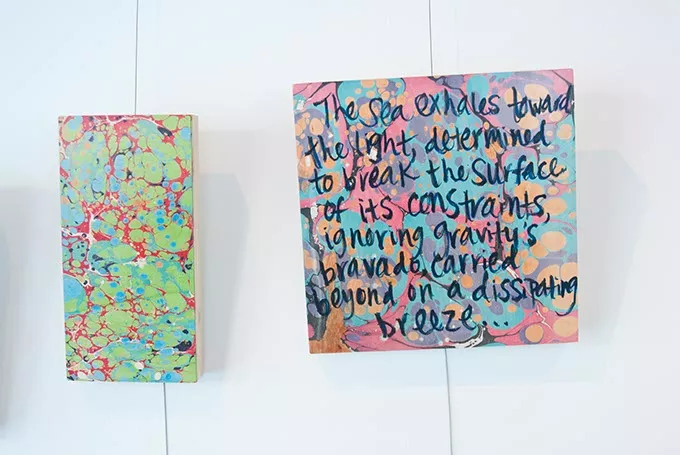 The sea exhales toward
the light, determined
to break the surface
of its constraints,
ignoring gravity's
bravado, carried
beyond on a dissipating
breeze...